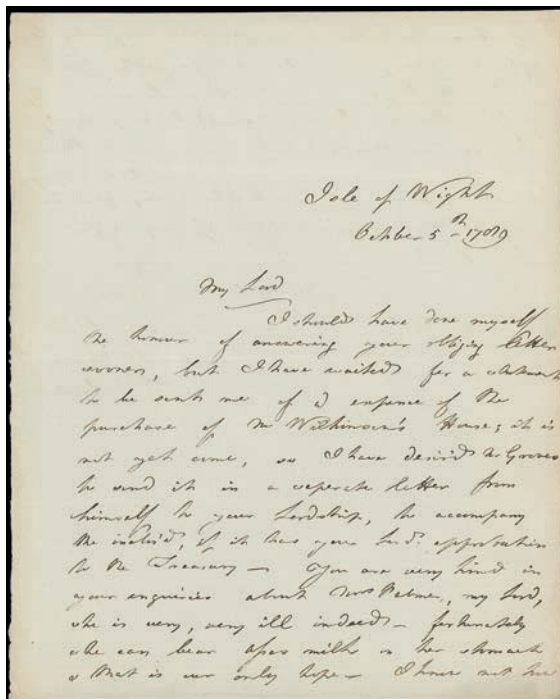 Isle of Wight
October 5th 1789
My Lord
I should have done myself
the honour of answering your obliging letter
sooner, but I have waited for a statement
to be sent me of expense of the
purchase of Mr Wilkinson's House; it is
not yet come, so I have desir'd Mr Groves
to send it in a seperate letter from
himself to your Lordship, to accompany
the inclos'd, if it has your Lord.s approbation
to the Treasury — You are very kind in
your enquiries about Mrs Palmer, my Lord,
she is very, very ill indeed – fortunately
she can bear asses milk on her stomach
& that is our only hope – I have not